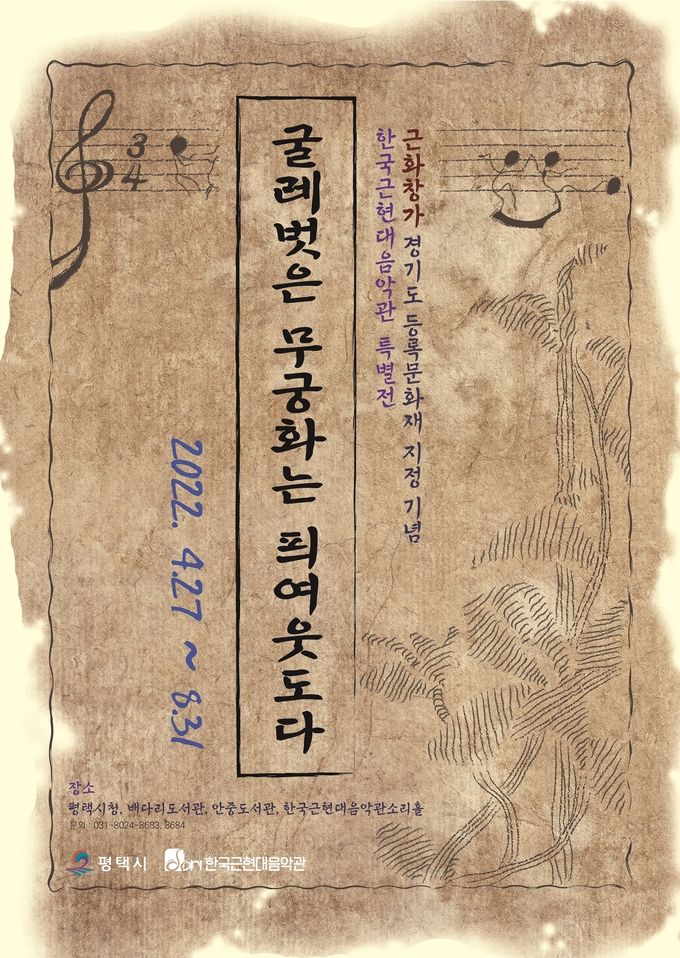 근화창가 경기도 등록문화재 지정 기념
한국근현대음악관 특별전
굴레벗은 무궁화는 픠여웃도다
2022. 4.27 ~ 8.31
3
4
장소
평택시청, 배다리도서관, 안중도서관, 한국근현대음악관소리홀
문의 : 031-8024-8683, 8684
평택시
한국근현대음악관